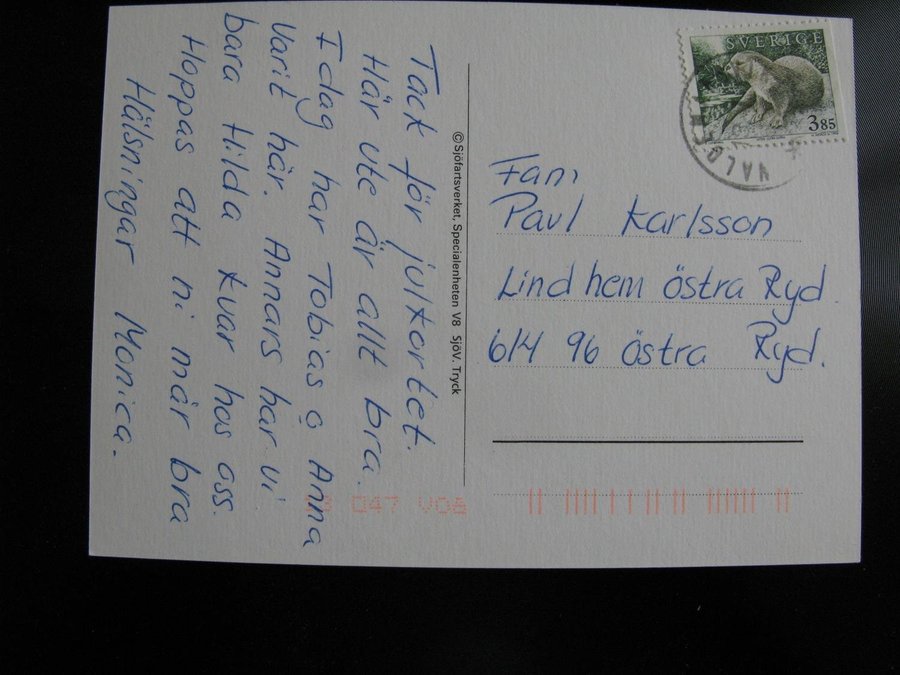 Tack för julkortet.
Här ute är allt bra.
Idag har Tobias o Anna
varit här. Annars har vi
bara Hilda kvar hos oss.
Hoppas att ni mår bra
Hälsningar Monica.
© Sjöfartsverket, Specialenheten V8 SjöV. Tryck
SVERIGE
385
VALD
Fam
Paul Karlsson
Lindhem östra Ryd.
614 96 östra Ryd.
047 VOA